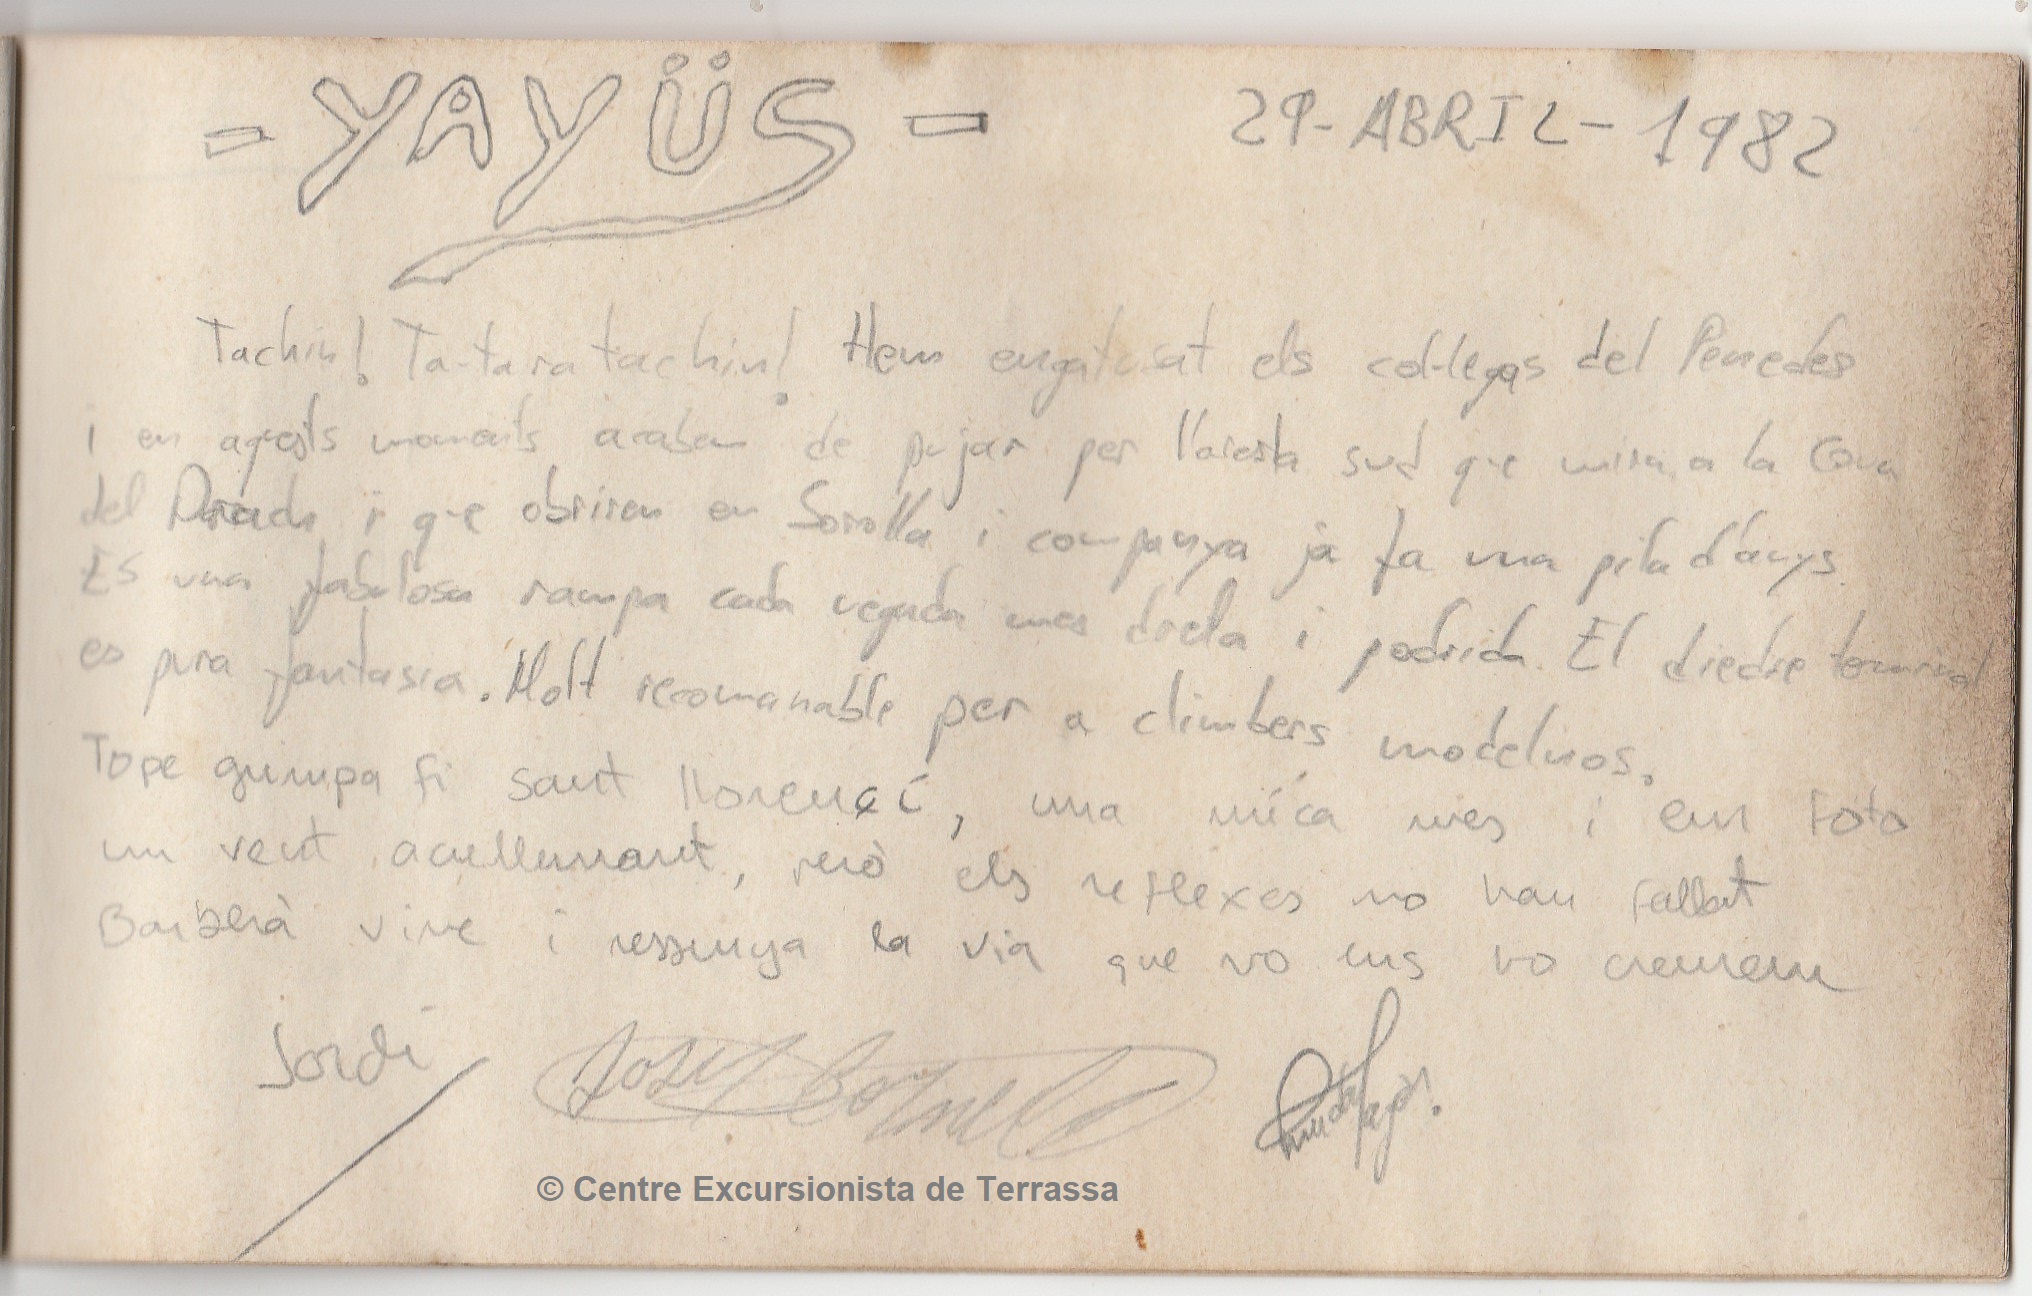 - YAYÜS -
29 - ABRIL - 1982
Tachin! Ta-tara tachin! Hem engatusat els col·legas del Penedes
i en aquests moments acabem de pujar per l'aresta sud que mira a la Cova
del Drach i que obriren en Sorolla i companya ja fa una pila d'anys.
Es una fabulosa rampa cada vegada mes dreta i podrida. El diedre terminal
es pura fantasia. Molt recomanable per a climbers modelnos.
Tope guimpa fi sant llorençí, una míca mes i em foto
un vent acullunant, però els reflexes no han fallat
Barberà vive i ressenya la via que no ens ho creiem
Jordi
Josep
© Centre Excursionista de Terrassa